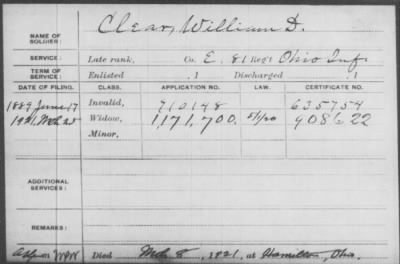 NAME OF SOLDIER: Clear, William D.
SERVICE: Late rank, Co. E. 81 Reg't Ohio Inf.
TERM OF SERVICE: Enlisted , 1 Discharged , 1
DATE OF FILING. CLASS. APPLICATION NO. LAW. CERTIFICATE NO.
1889 June 17 Invalid, 710148 635754
1921 Mch 25 Widow, 1,171,700. 5/1/20 908622
Minor,
ADDITIONAL SERVICES:
REMARKS:
Died Mch 8, 1921, at Hamilton, Ohio.